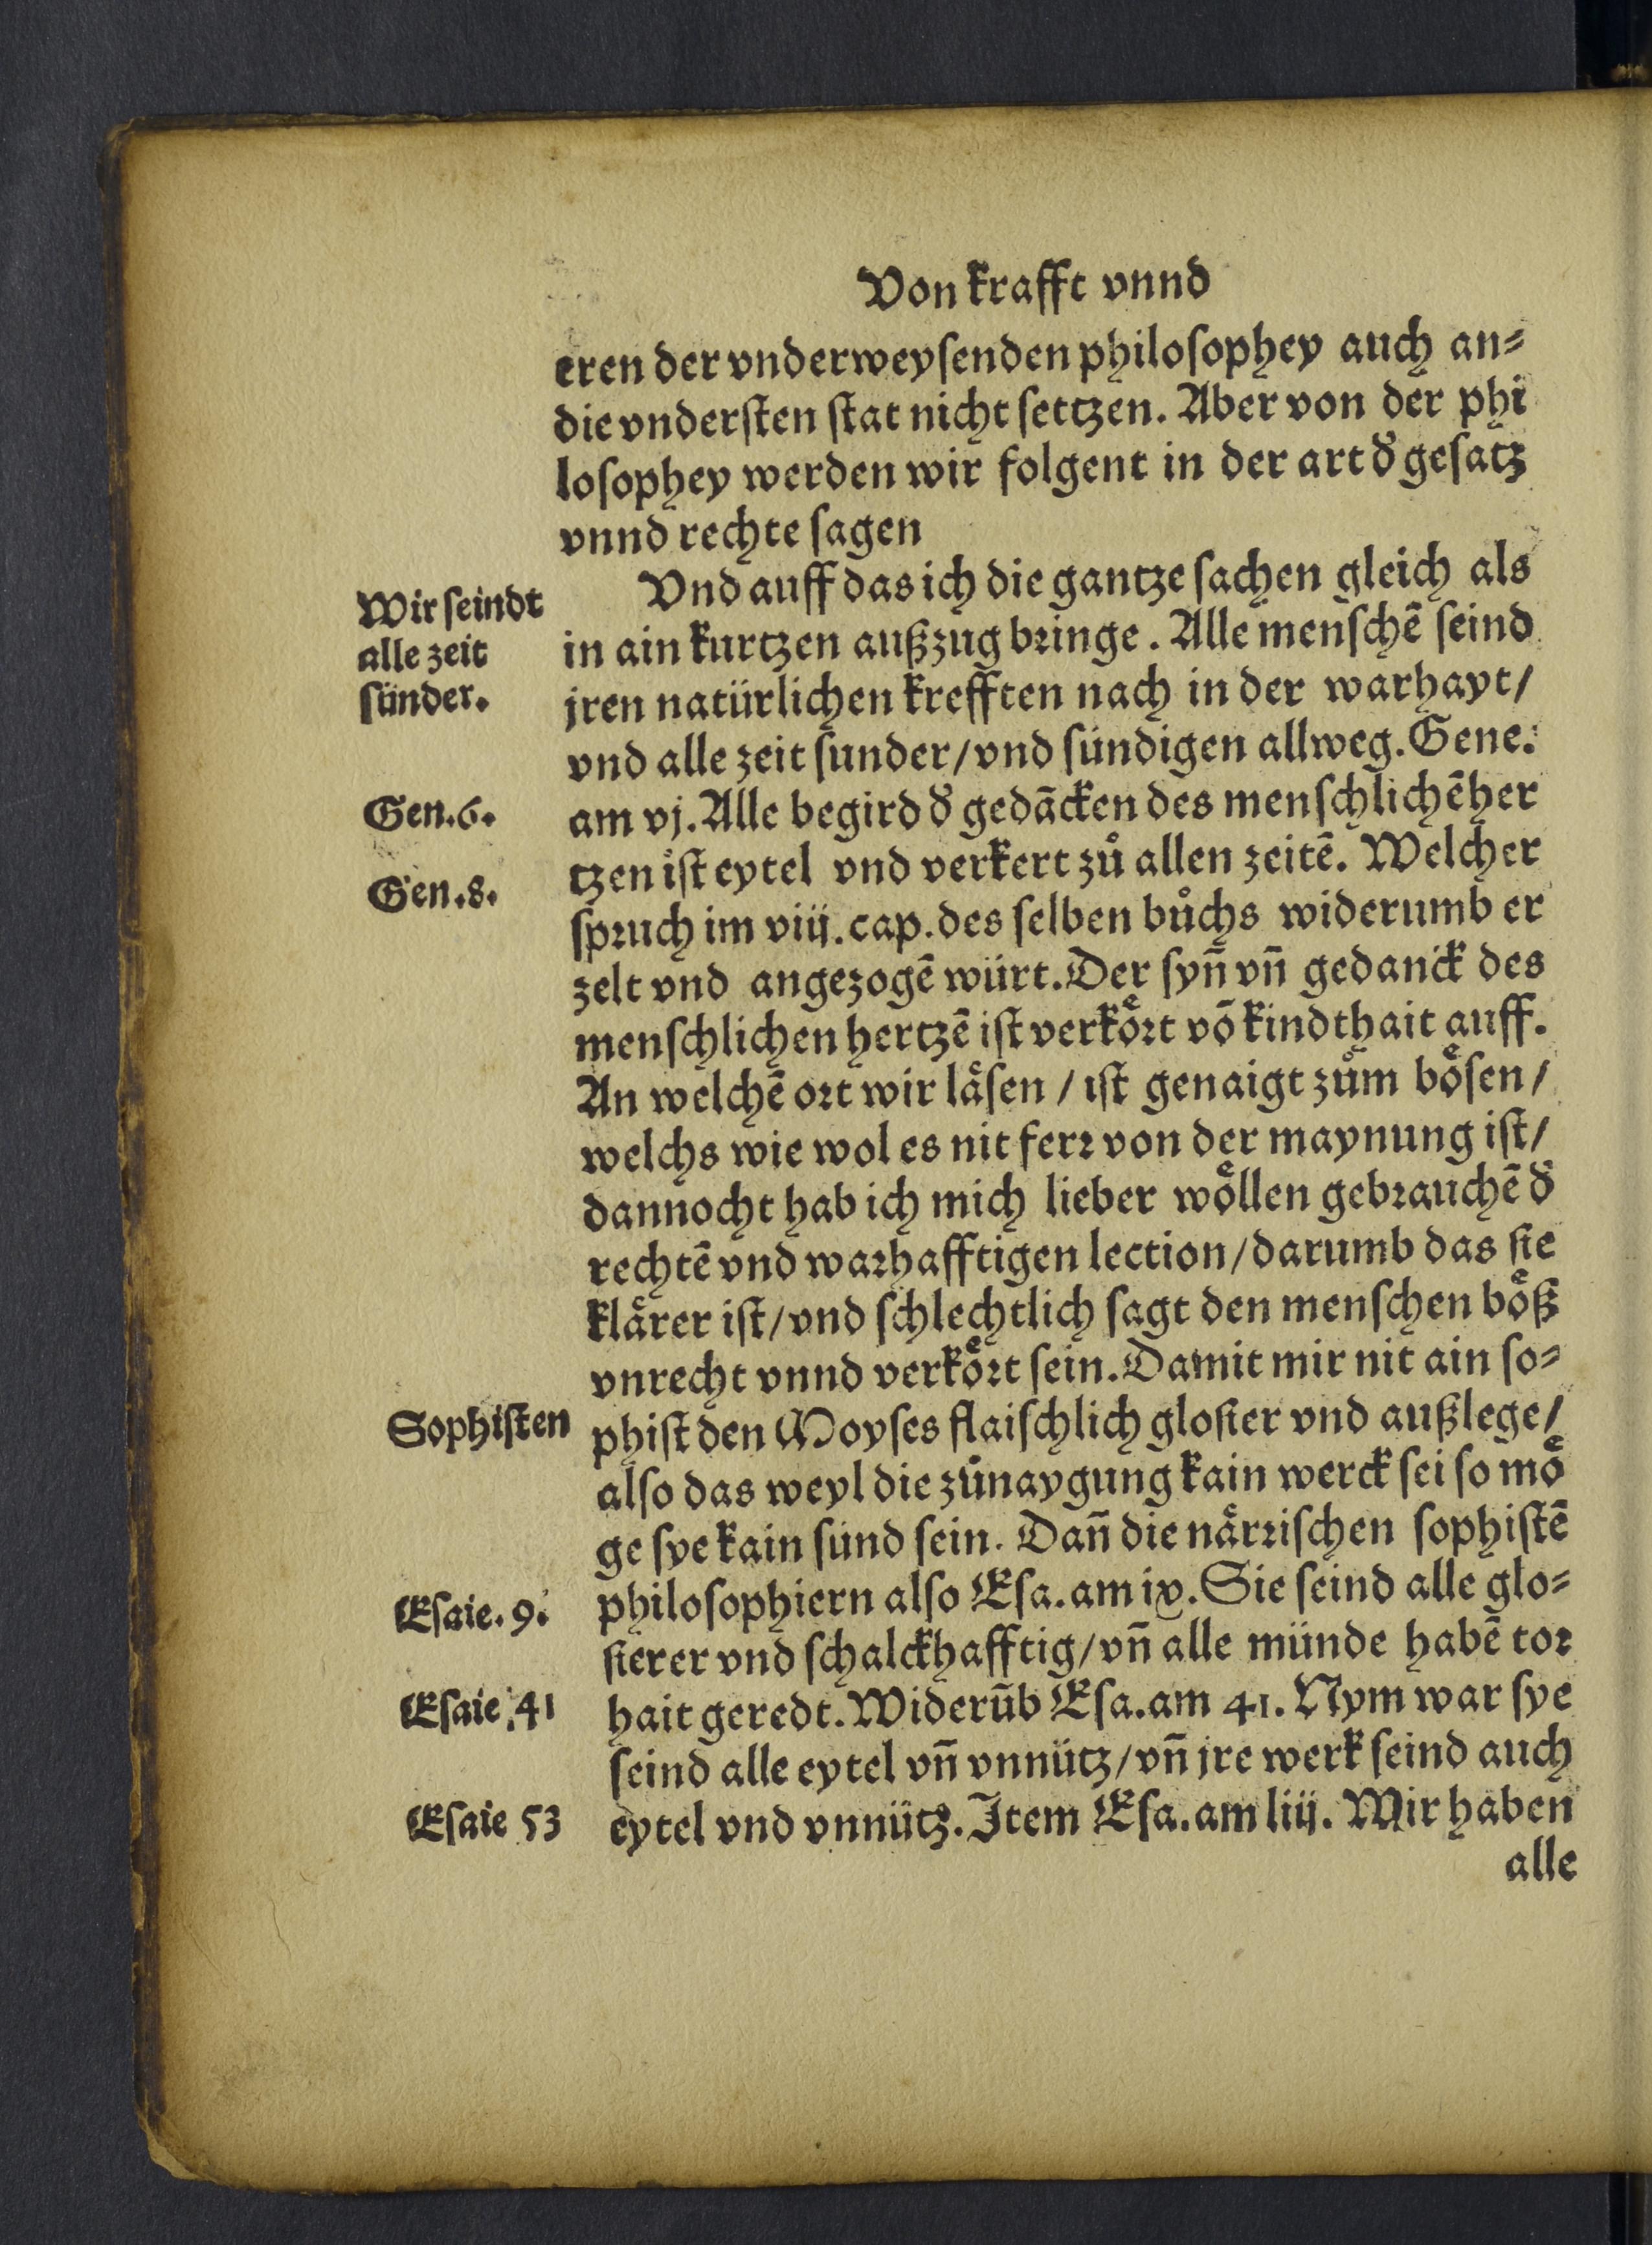 Von krafft vnnd
eren der vnderweyſenden philoſophey auch an⸗
die vnderſten ſtat nicht ſettzen. Aber von der phi
loſophey werden wir folgent in der art d̕ geſatz
vnnd rechte ſagen
Wir ſeindt
alle zeit
ſünder.
Vnd auff das ich die gantze ſachen gleich als
in ain kurtzen außzug bꝛinge. Alle menſchē ſeind
jren natürlichen krefften nach in der warhayt/
vnd alle zeit ſunder/vnd ſündigen allweg. Gene.
Gen.6.
am vj. Alle begird d̕ gedācken des menſchlichē her
Gen.8.
tzen iſt eytel vnd verkert zů allen zeitē. Welcher
ſpꝛuch im viij.cap.des ſelben bůchs widerumb er
zelt vnd angezogē würt. Der ſyn̄ vn̄ gedanck des
menſchlichen hertzē iſt verkoͤꝛt vō kindthait auff.
An welchē oꝛt wir laͤſen / iſt genaigt zům boͤſen/
welchs wie wol es nit ferꝛ von der maynung iſt/
dannocht hab ich mich lieber woͤllen gebꝛauchē d̕
rechtē vnd waꝛhafftigen lection/darumb das ſie
klaͤrer iſt/vnd ſchlechtlich ſagt den menſchen boͤß
vnrecht vnnd verkoͤꝛt ſein. Damit mir nit ain ſo⸗
Sophiſten
phiſt den Moyſes flaiſchlich gloſier vnd außlege/
alſo das weyl die zůnaygung kain werck ſei ſo moͤ
ge ſye kain ſünd ſein. Dan̄ die naͤrꝛiſchen ſophiſtē
Eſaie. 9.
philoſophiern alſo Eſa. am ix. Sie ſeind alle glo⸗
ſierer vnd ſchalckhafftig/vn̄ alle münde habē toꝛ
Eſaie 41
hait geredt. Widerūb Eſa.am 41. Nym war ſye
ſeind alle eytel vn̄ vnnütz/vn̄ jre werk ſeind auch
Eſaie 53
eytel vnd vnnütz. Item Eſa.am liij. Wir haben
alle